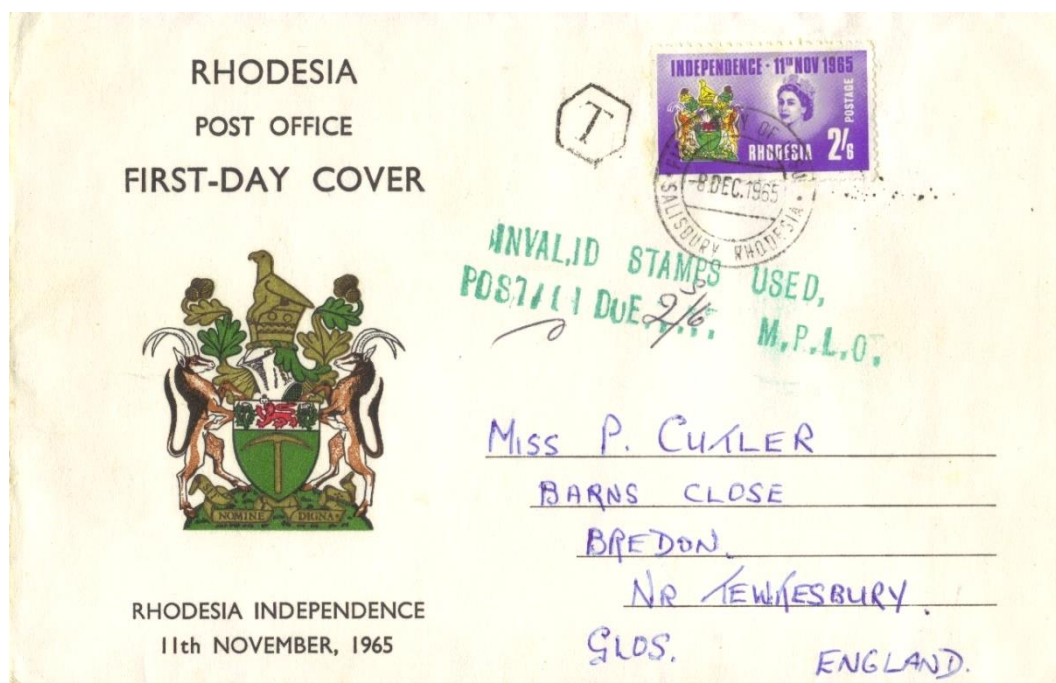 RHODESIA
POST OFFICE
FIRST-DAY COVER
NOMINE DIGNA
RHODESIA INDEPENDENCE
11th NOVEMBER, 1965
T
INDEPENDENCE · 11TH NOV 1965
POSTAGE
RHODESIA 2/6
OF
-8 DEC. 1965
SALISBURY RHODESIA
INVALID STAMPS USED,
DUE 2/6 M.P.L.O.
MISS P. CUTLER
BARNS CLOSE
BREDON.
NR TEWKESBURY.
GLOS.
ENGLAND.